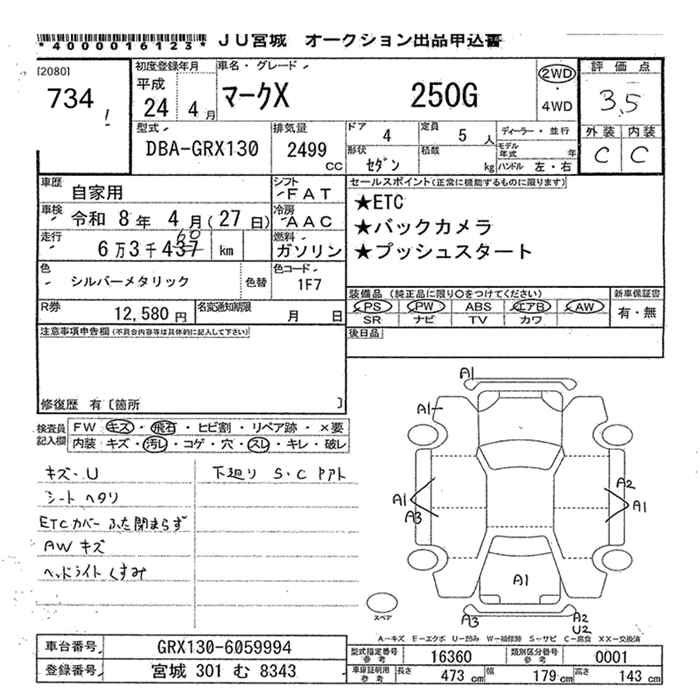 *4000016123* JU宮城 オークション出品申込書
[2080]
734
初度登録年月
平成
24 4月
車名・グレード
マークX 250G
2WD
4WD
評価点
3.5
外装 内装
C C
型式
DBA-GRX130
排気量
2499
CC
ドア 4
定員 5人
形状 セダン
積数 kg
ディーラー・並行
モデル年式 年
ハンドル 左・右
車歴 自家用
シフト FAT
車検 令和 8年 4月(27日)
冷房 AAC
走行 6万3千437 km
60
燃料 ガソリン
色 シルバーメタリック
色替
色コード 1F7
R券 12,580円
名変通知期限 月 日
セールスポイント(正常に機能するものに限ります)
★ETC
★バックカメラ
★プッシュスタート
装備品(純正品に限り○をつけてください)
PS PW ABS エアB AW
SR ナビ TV カワ
新車保証書
有・無
後日品
注意事項申告欄(不具合内容等は具体的に記入して下さい)
修復歴 有〔箇所 〕
検査員記入欄
FW キズ・飛石・ヒビ割・リペア跡・×要
内装・キズ・汚レ・コゲ・穴・スレ・キレ・破レ
キズ・U
シート ヘタリ
ETCカバー ふた閉まらず
AW キズ
ヘッドライト くすみ
下廻り S・C
A1
A1
A1
A3
A2
A1
A1
A3
A2
U2
スペア
A―キズ E―エクボ U―凹み W―補修跡 S―サビ C―腐食 XX―交換済
車台番号 GRX130-6059994
登録番号 宮城 301 む 8343
型式指定番号 参考 16360
類別区分番号 参考 0001
車庫証明用 参考 長さ 473cm 幅 179cm 高さ 143cm